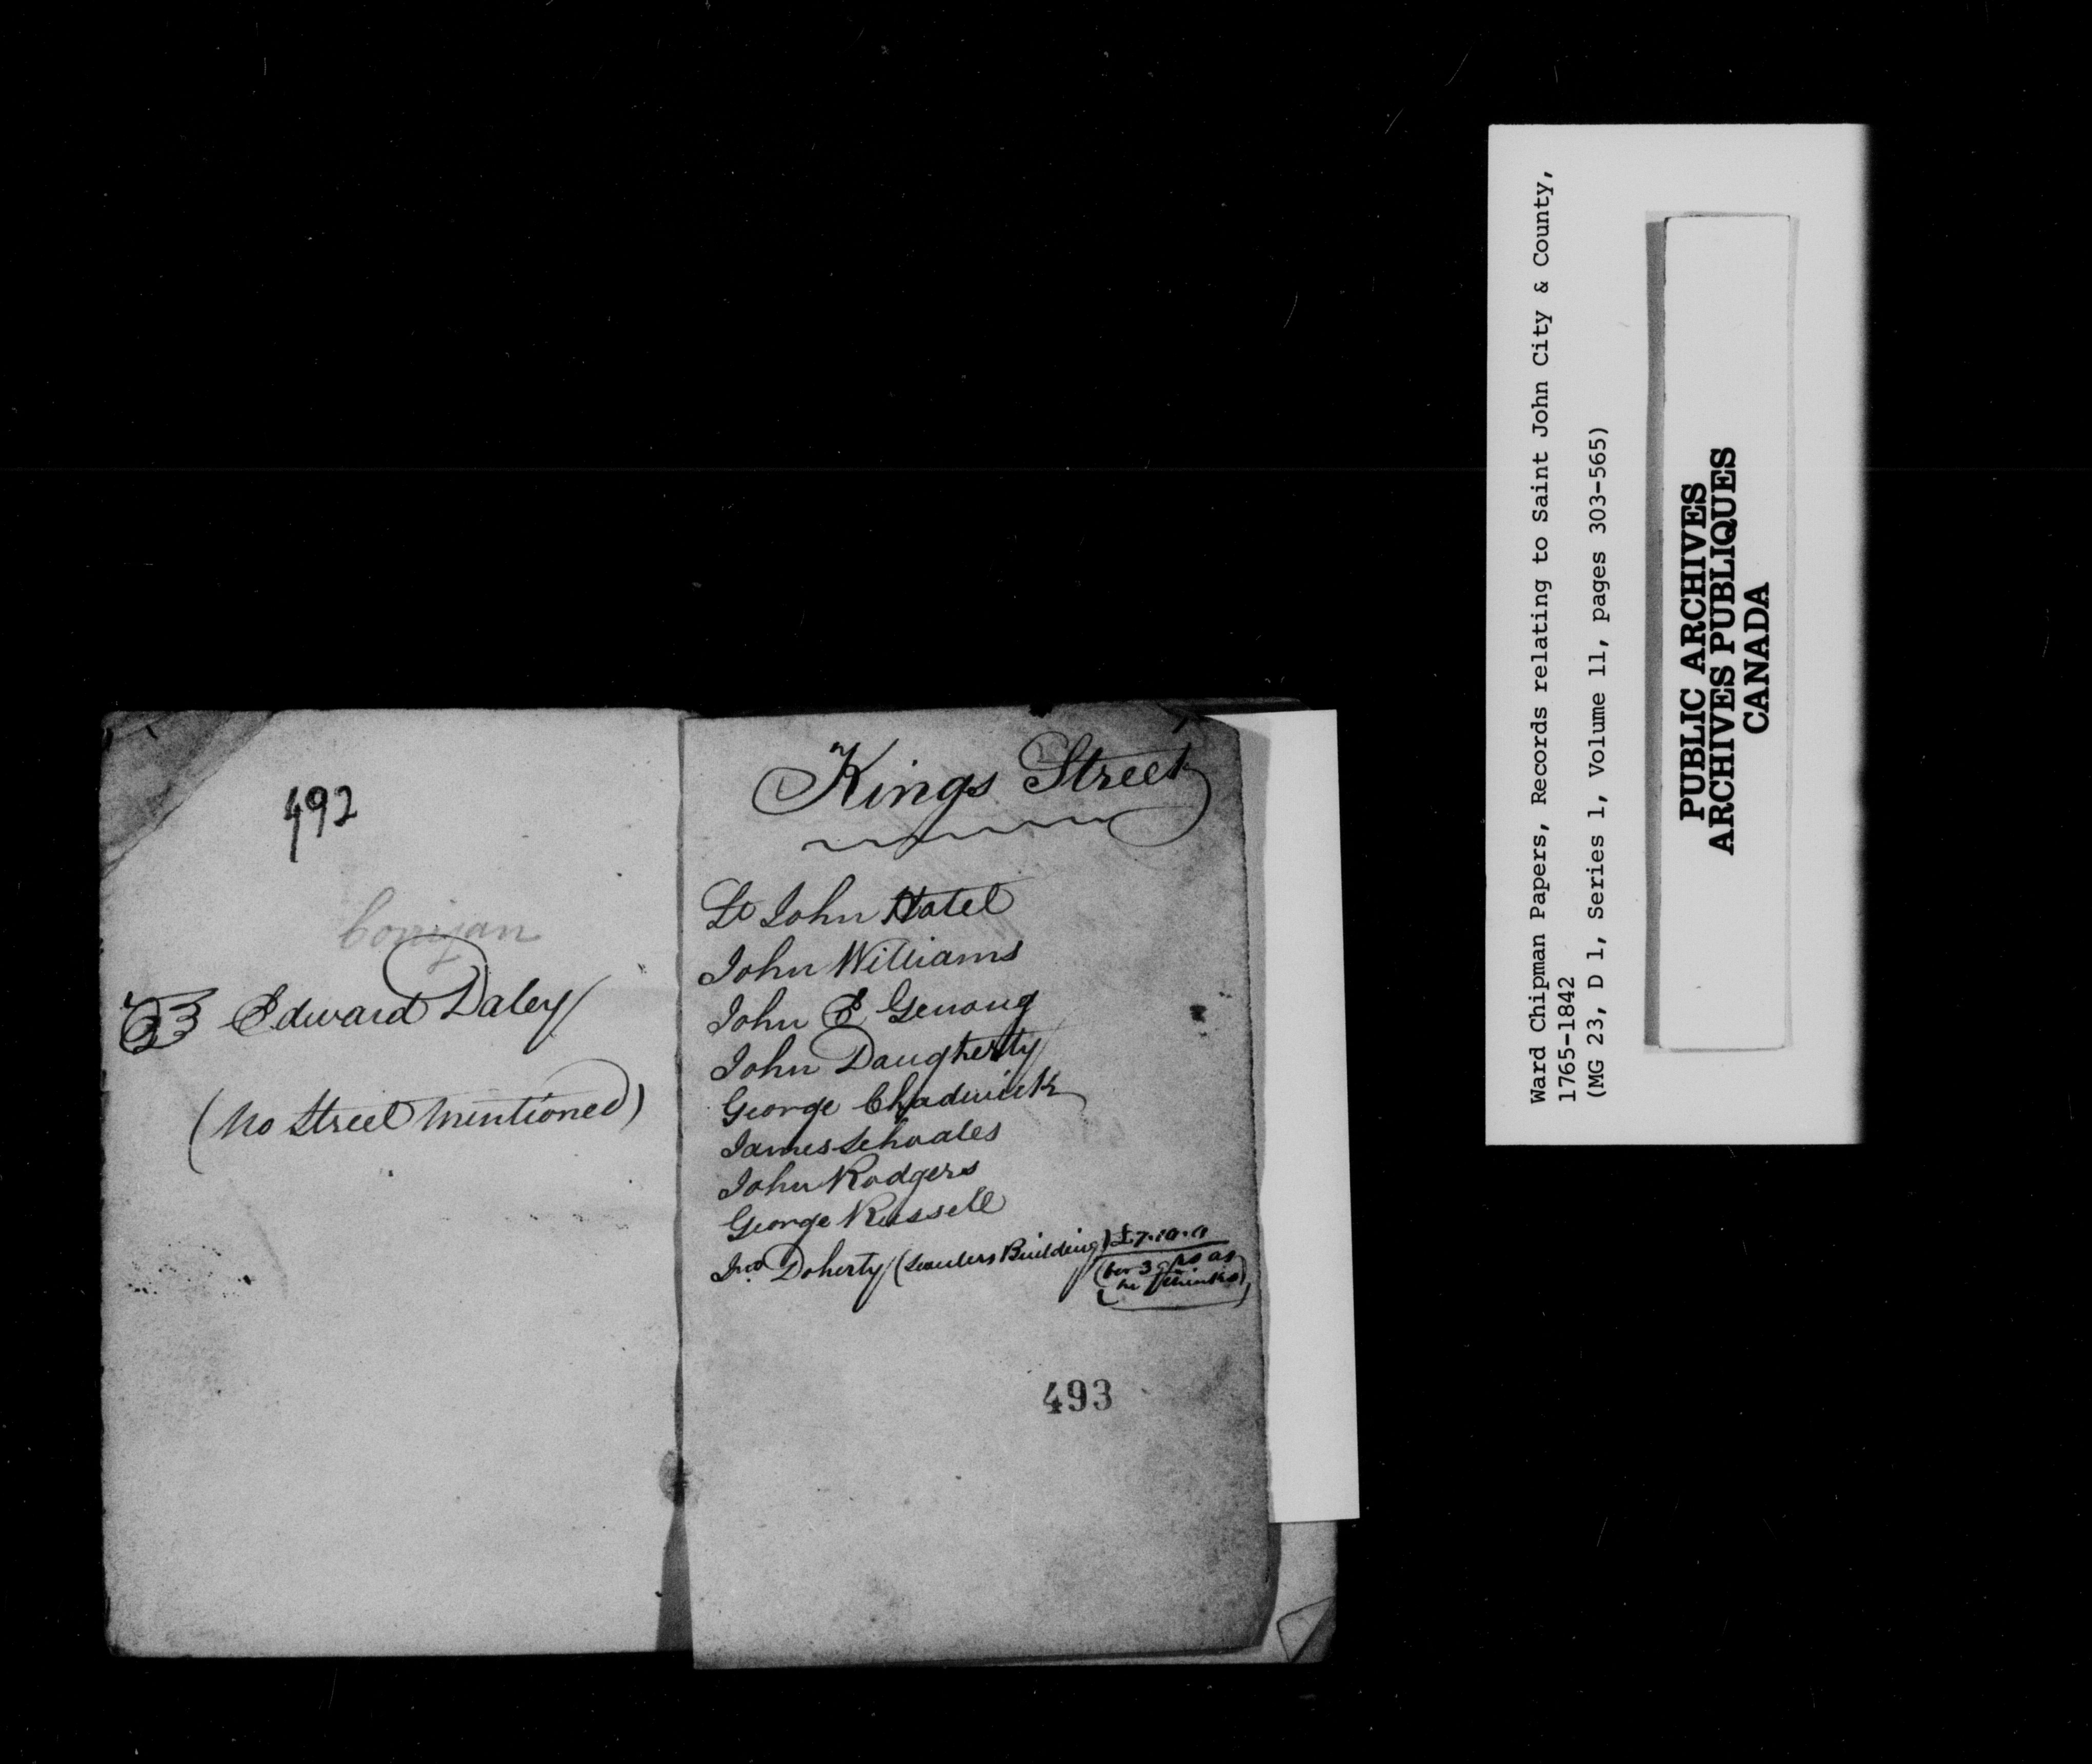 492
Edward Daley
(No Street Mentioned)
Kings Street
St John Hotel
John Williams
John E Genong
John Daugherty
George Chadwick
James Schoales
John Rodgers
George Russell
Jno Doherty ( Building) £7.10.0
(for 3 as
he thinks)
493
Ward Chipman Papers, Records relating to Saint John City & County,
1765-1842
(MG 23, D 1, Series 1, Volume 11, pages 303-565)
PUBLIC ARCHIVES
ARCHIVES PUBLIQUES
CANADA